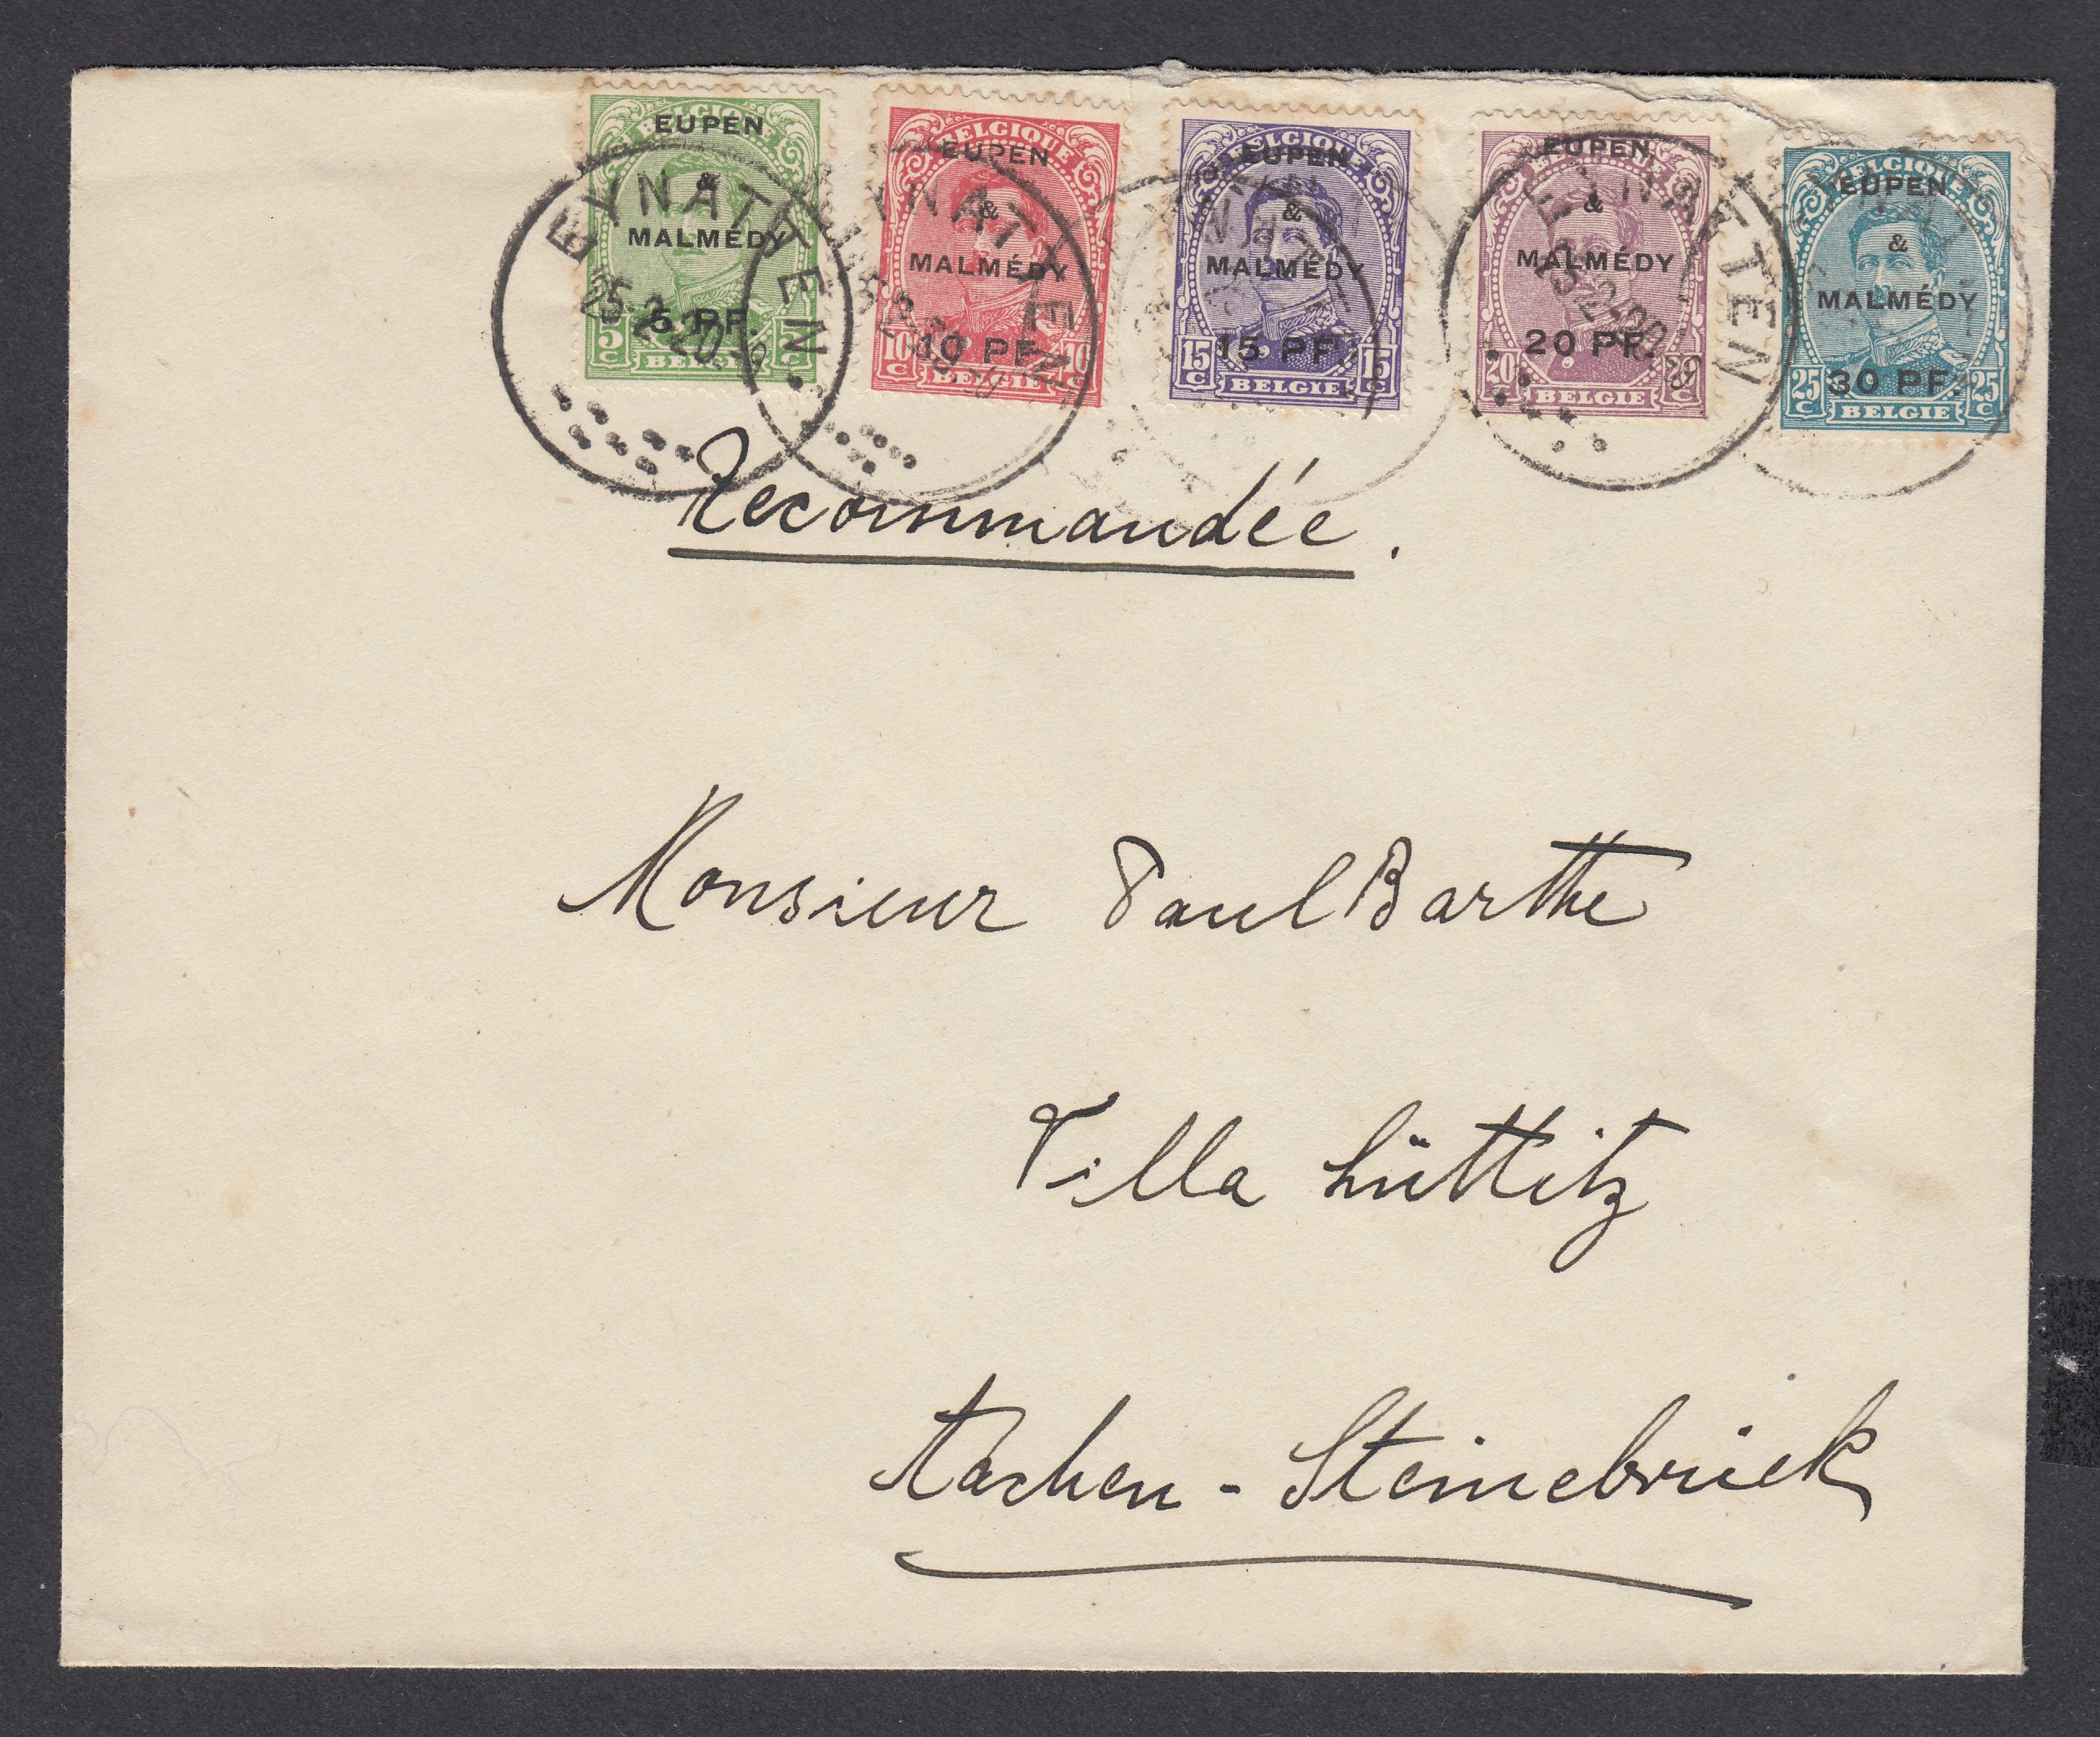 BELGIQUE
EUPEN
&
MALMÉDY
5 PF.
5c 5c
BELGIE
BELGIQUE
EUPEN
&
MALMÉDY
10 PF.
10c 10c
BELGIE
BELGIQUE
EUPEN
&
MALMÉDY
15 PF.
15c 15c
BELGIE
EUPEN
&
MALMÉDY
20 PF.
20c 20c
BELGIE
BELGIQUE
EUPEN
&
MALMÉDY
30 PF.
25c 25c
BELGIE
EYNATTEN
EYNATTEN
EYNATTEN
Recommandée.
Monsieur Paul Barthe
Villa Lüttitz
Aachen - Steinebrück